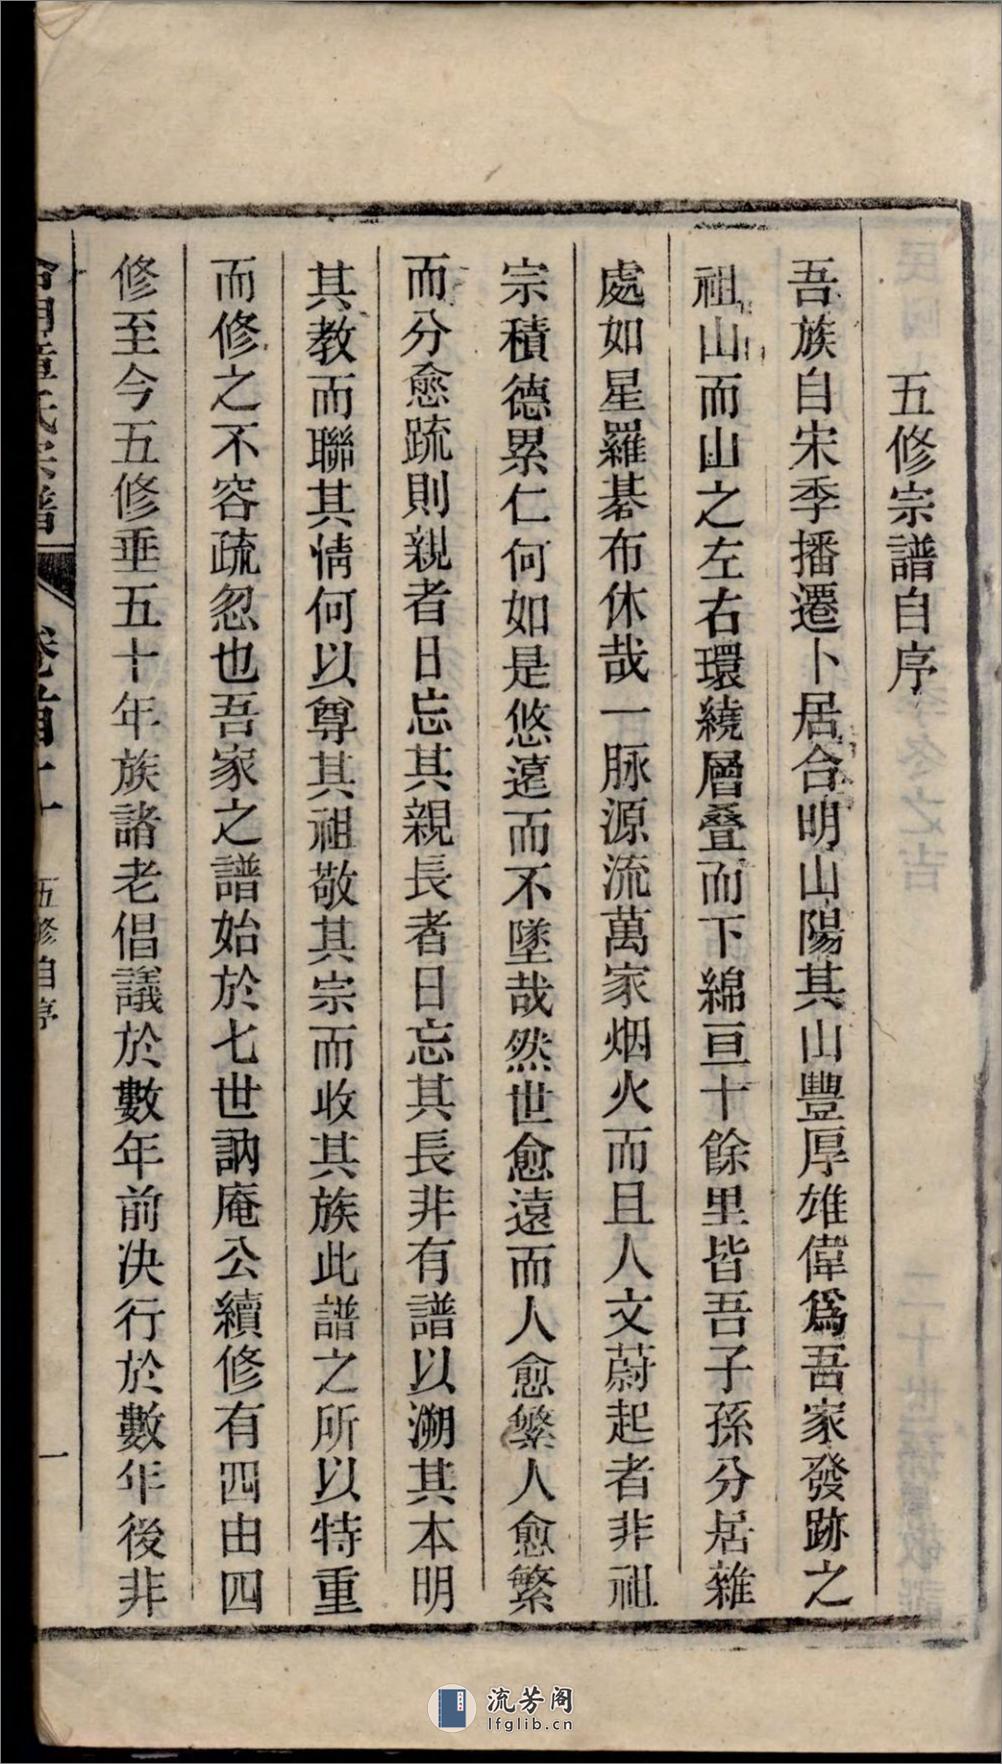 五修宗譜自序
吾族自宋季播遷卜居合明山陽其山豐厚雄偉爲吾家發跡之
祖山而山之左右環繞層叠而下綿亘十餘里皆吾子孫分居雜
處如星羅碁布休哉一脉源流萬家烟火而且人文蔚起者非祖
宗積德累仁何如是悠遠而不墜哉然世愈遠而人愈繁人愈繁
而分愈疏則親者日忘其親長者日忘其長非有譜以溯其本明
其教而聯其情何以尊其祖敬其宗而收其族此譜之所以特重
而修之不容疏忽也吾家之譜始於七世訥庵公續修有四由四
修至今五修垂五十年族諸老倡議於數年前决行於數年後非
氏宗譜
卷首上
五修自序
一
流芳阁
lfglib.cn